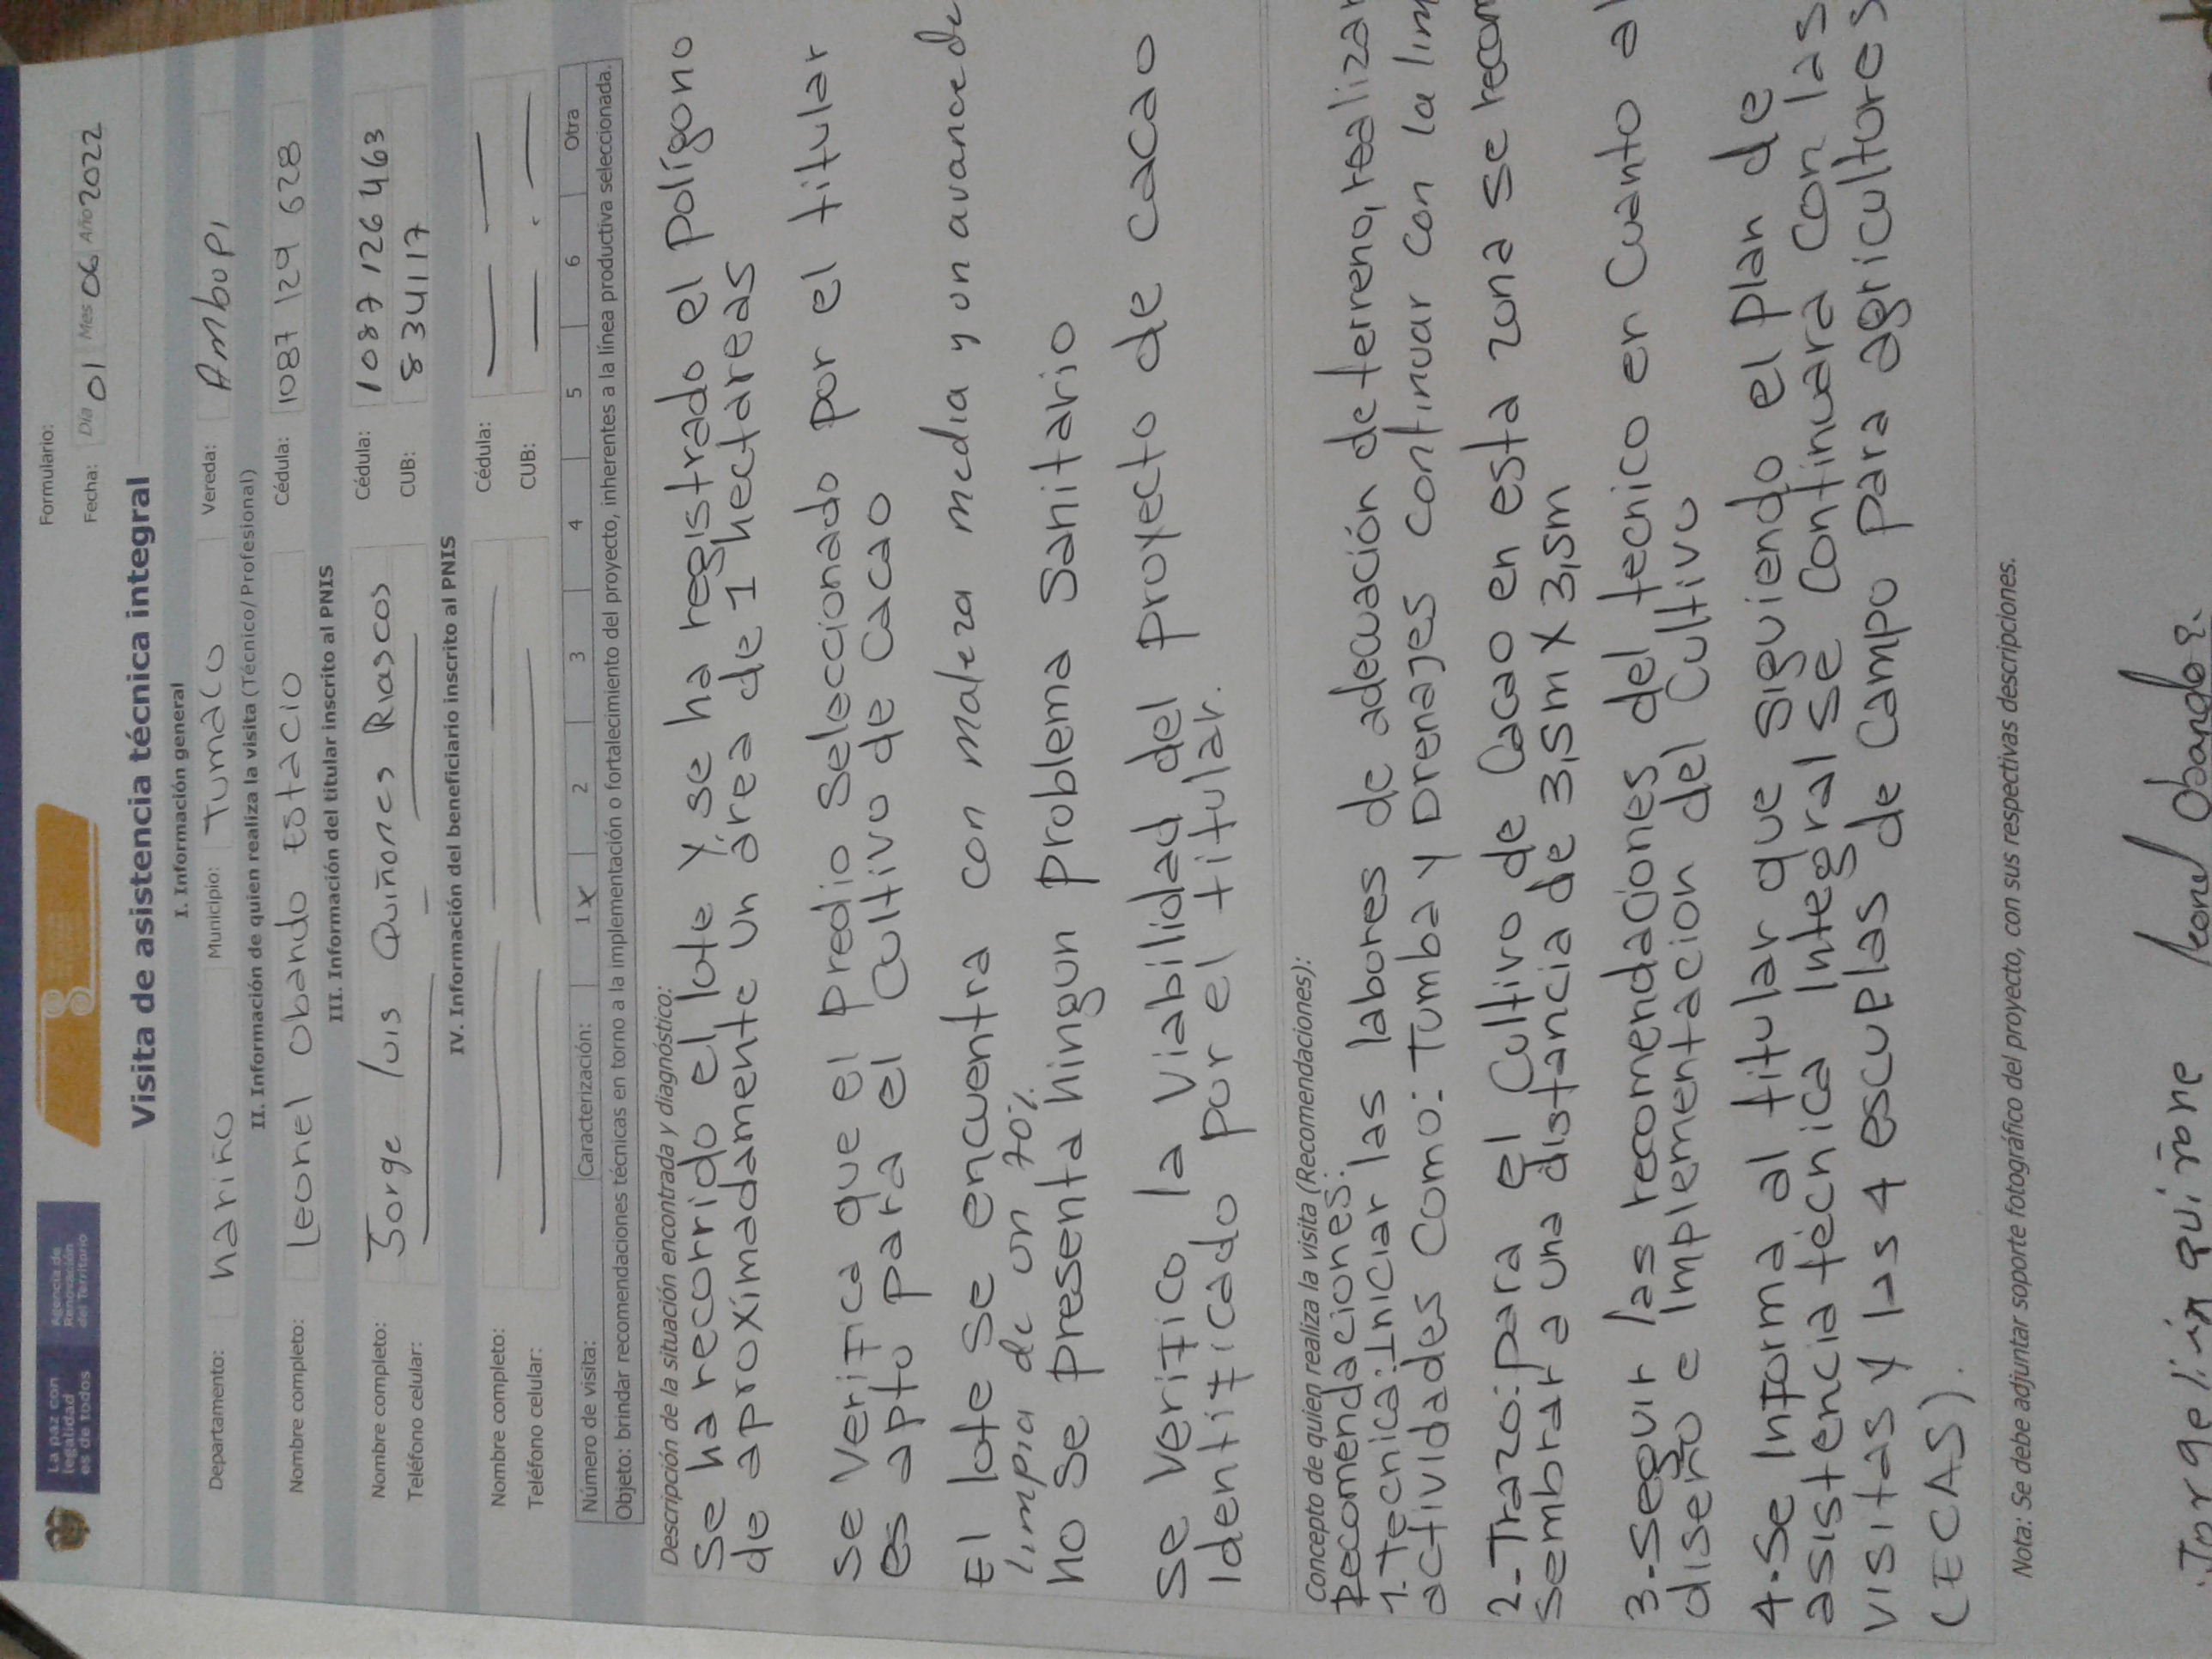 La paz con
legalidad
es de todos
Agencia de
Renovación
del Territorio
Formulario:
Fecha: Día 01 Mes 06 Año 2022
Visita de asistencia técnica integral
I. Información general
Departamento: nariño Municipio: Tumaco Vereda: Ambupi
II. Información de quien realiza la visita (Técnico/Profesional)
Nombre completo: leonel obando Estacio Cédula: 1087 129 628
III. Información del titular inscrito al PNIS
Nombre completo: Jorge luis Quiñones Riascos Cédula: 1087 126 463
Teléfono celular: CUB: 834117
IV. Información del beneficiario inscrito al PNIS
Nombre completo: Cédula:
Teléfono celular: CUB:
Número de visita: Caracterización: 1 X 2 3 4 5 6 Otra
Objeto: brindar recomendaciones técnicas en torno a la implementación o fortalecimiento del proyecto, inherentes a la línea productiva seleccionada.
Descripción de la situación encontrada y diagnóstico:
Se ha recorrido el lote y se ha registrado el polígono
de aproximadamente un área de 1 hectareas
Se Verifica que el predio Seleccionado por el titular
es apto para el Cultivo de Cacao
El lote se encuentra con maleza media y un avance de
limpia de un 70%.
no Se presenta ningun problema Sanitario
Se Verifico la Viabilidad del proyecto de cacao
Identificado por el titular.
Concepto de quien realiza la visita (Recomendaciones):
Recomendaciones:
1.-Tecnica: Iniciar las labores de adecuación de terreno, realizar
actividades Como: Tumba y Drenajes continuar con la lim
2.-Trazo: para el Cultivo de Cacao en esta zona se recom
Sembrar a una distancia de 3,5m X 3,5m
3.-Seguir las recomendaciones del tecnico en Cuanto al
diseño e Implementacion del Cultivo
4.-Se Informa al titular que siguiendo el plan de
asistencia técnica Integral se Continuara Con las
visitas y las 4 escuplas de Campo para agricultores
(ECAS).
Nota: Se debe adjuntar soporte fotográfico del proyecto, con sus respectivas descripciones.
Jorge liix quiñone leonel Obando E.